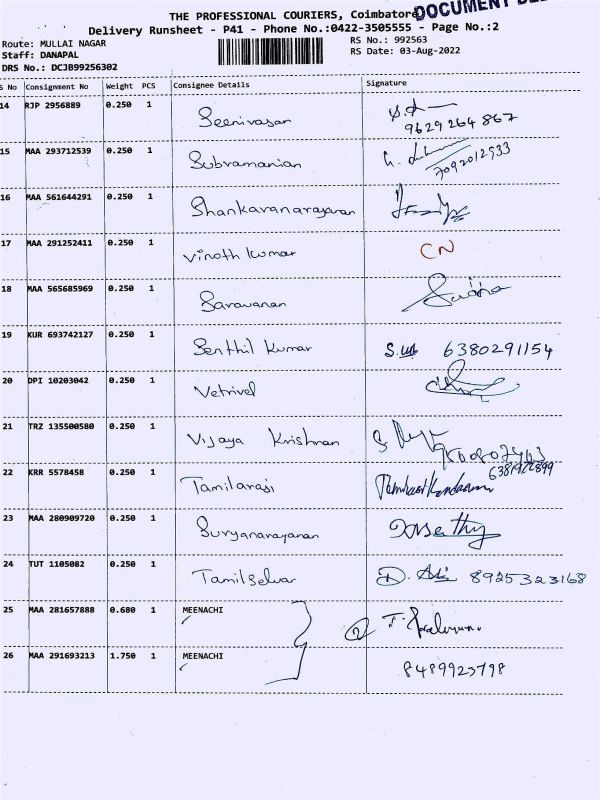 THE PROFESSIONAL COURIERS, Coimbatore
DOCUMENT
Delivery Runsheet - P41 - Phone No.:0422-3505555 - Page No.:2
Route: MULLAI NAGAR
RS No.: 992563
Staff: DANAPAL
RS Date: 03-Aug-2022
DRS No.: DCJB99256302
S No Consignment No Weight PCS Consignee Details Signature
14 RJP 2956889 0.250 1 Seenivasan
9629264867
15 MAA 293712539 0.250 1 Subramanian
7092012933
16 MAA 561644291 0.250 1 Shankaranarayanan
17 MAA 291252411 0.250 1 Vinoth kumar CN
18 MAA 565685969 0.250 1 Saravanan
19 KUR 693742127 0.250 1 Senthil Kumar 6380291154
20 DPI 10203042 0.250 1 Vetrivel
21 TRZ 135500580 0.250 1 Vijaya Krishnan
22 KRR 5578458 0.250 1 Tamilarasi
23 MAA 280909720 0.250 1 Suryanarayanan
24 TUT 1105082 0.250 1 Tamilselvar D. 8925323168
25 MAA 281657888 0.680 1 MEENACHI
26 MAA 291693213 1.750 1 MEENACHI
8489923798